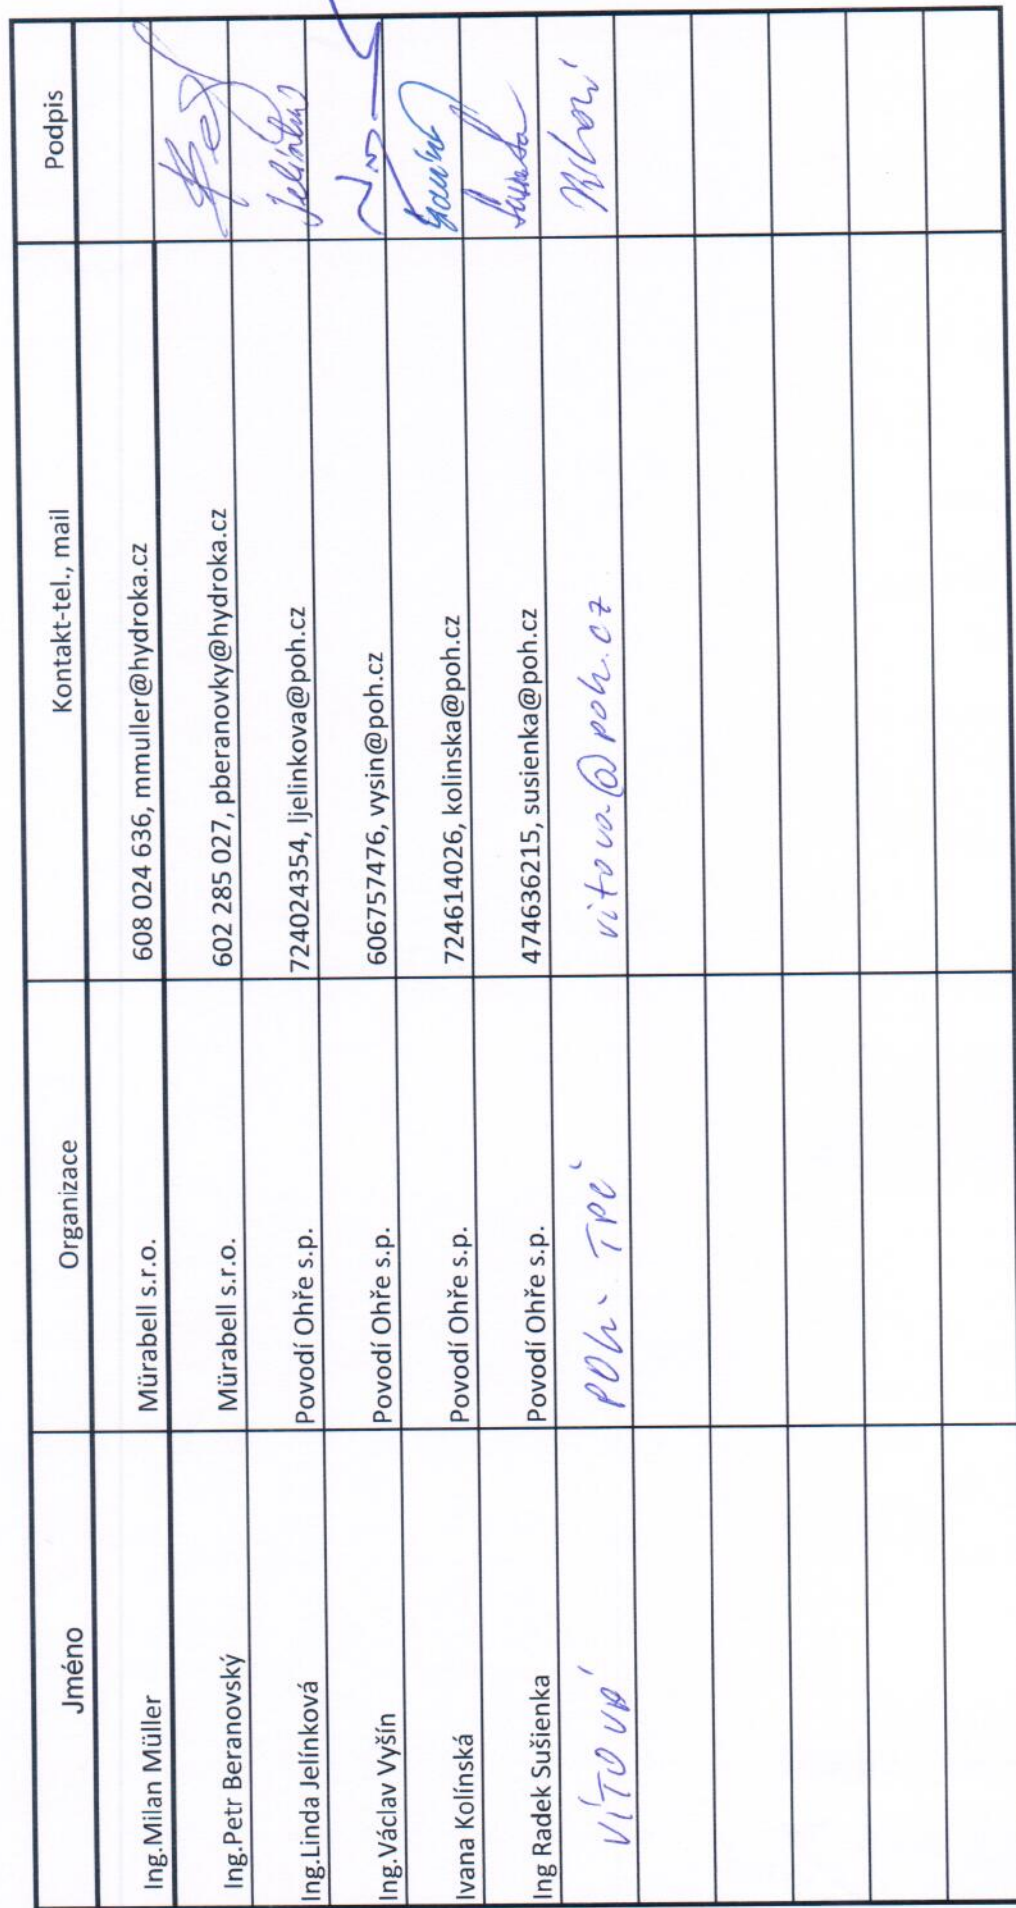 Jméno Organizace Kontakt-tel., mail Podpis
Ing.Milan Müller Mürabell s.r.o. 608 024 636, mmuller@hydroka.cz
Ing.Petr Beranovský Mürabell s.r.o. 602 285 027, pberanovky@hydroka.cz
Ing.Linda Jelínková Povodí Ohře s.p. 724024354, ljelinkova@poh.cz
Ing.Václav Vyšín Povodí Ohře s.p. 606757476, vysin@poh.cz
Ivana Kolínská Povodí Ohře s.p. 724614026, kolinska@poh.cz
Ing Radek Sušienka Povodí Ohře s.p. 474636215, susienka@poh.cz
VÍTOVÁ vitova@poh.cz